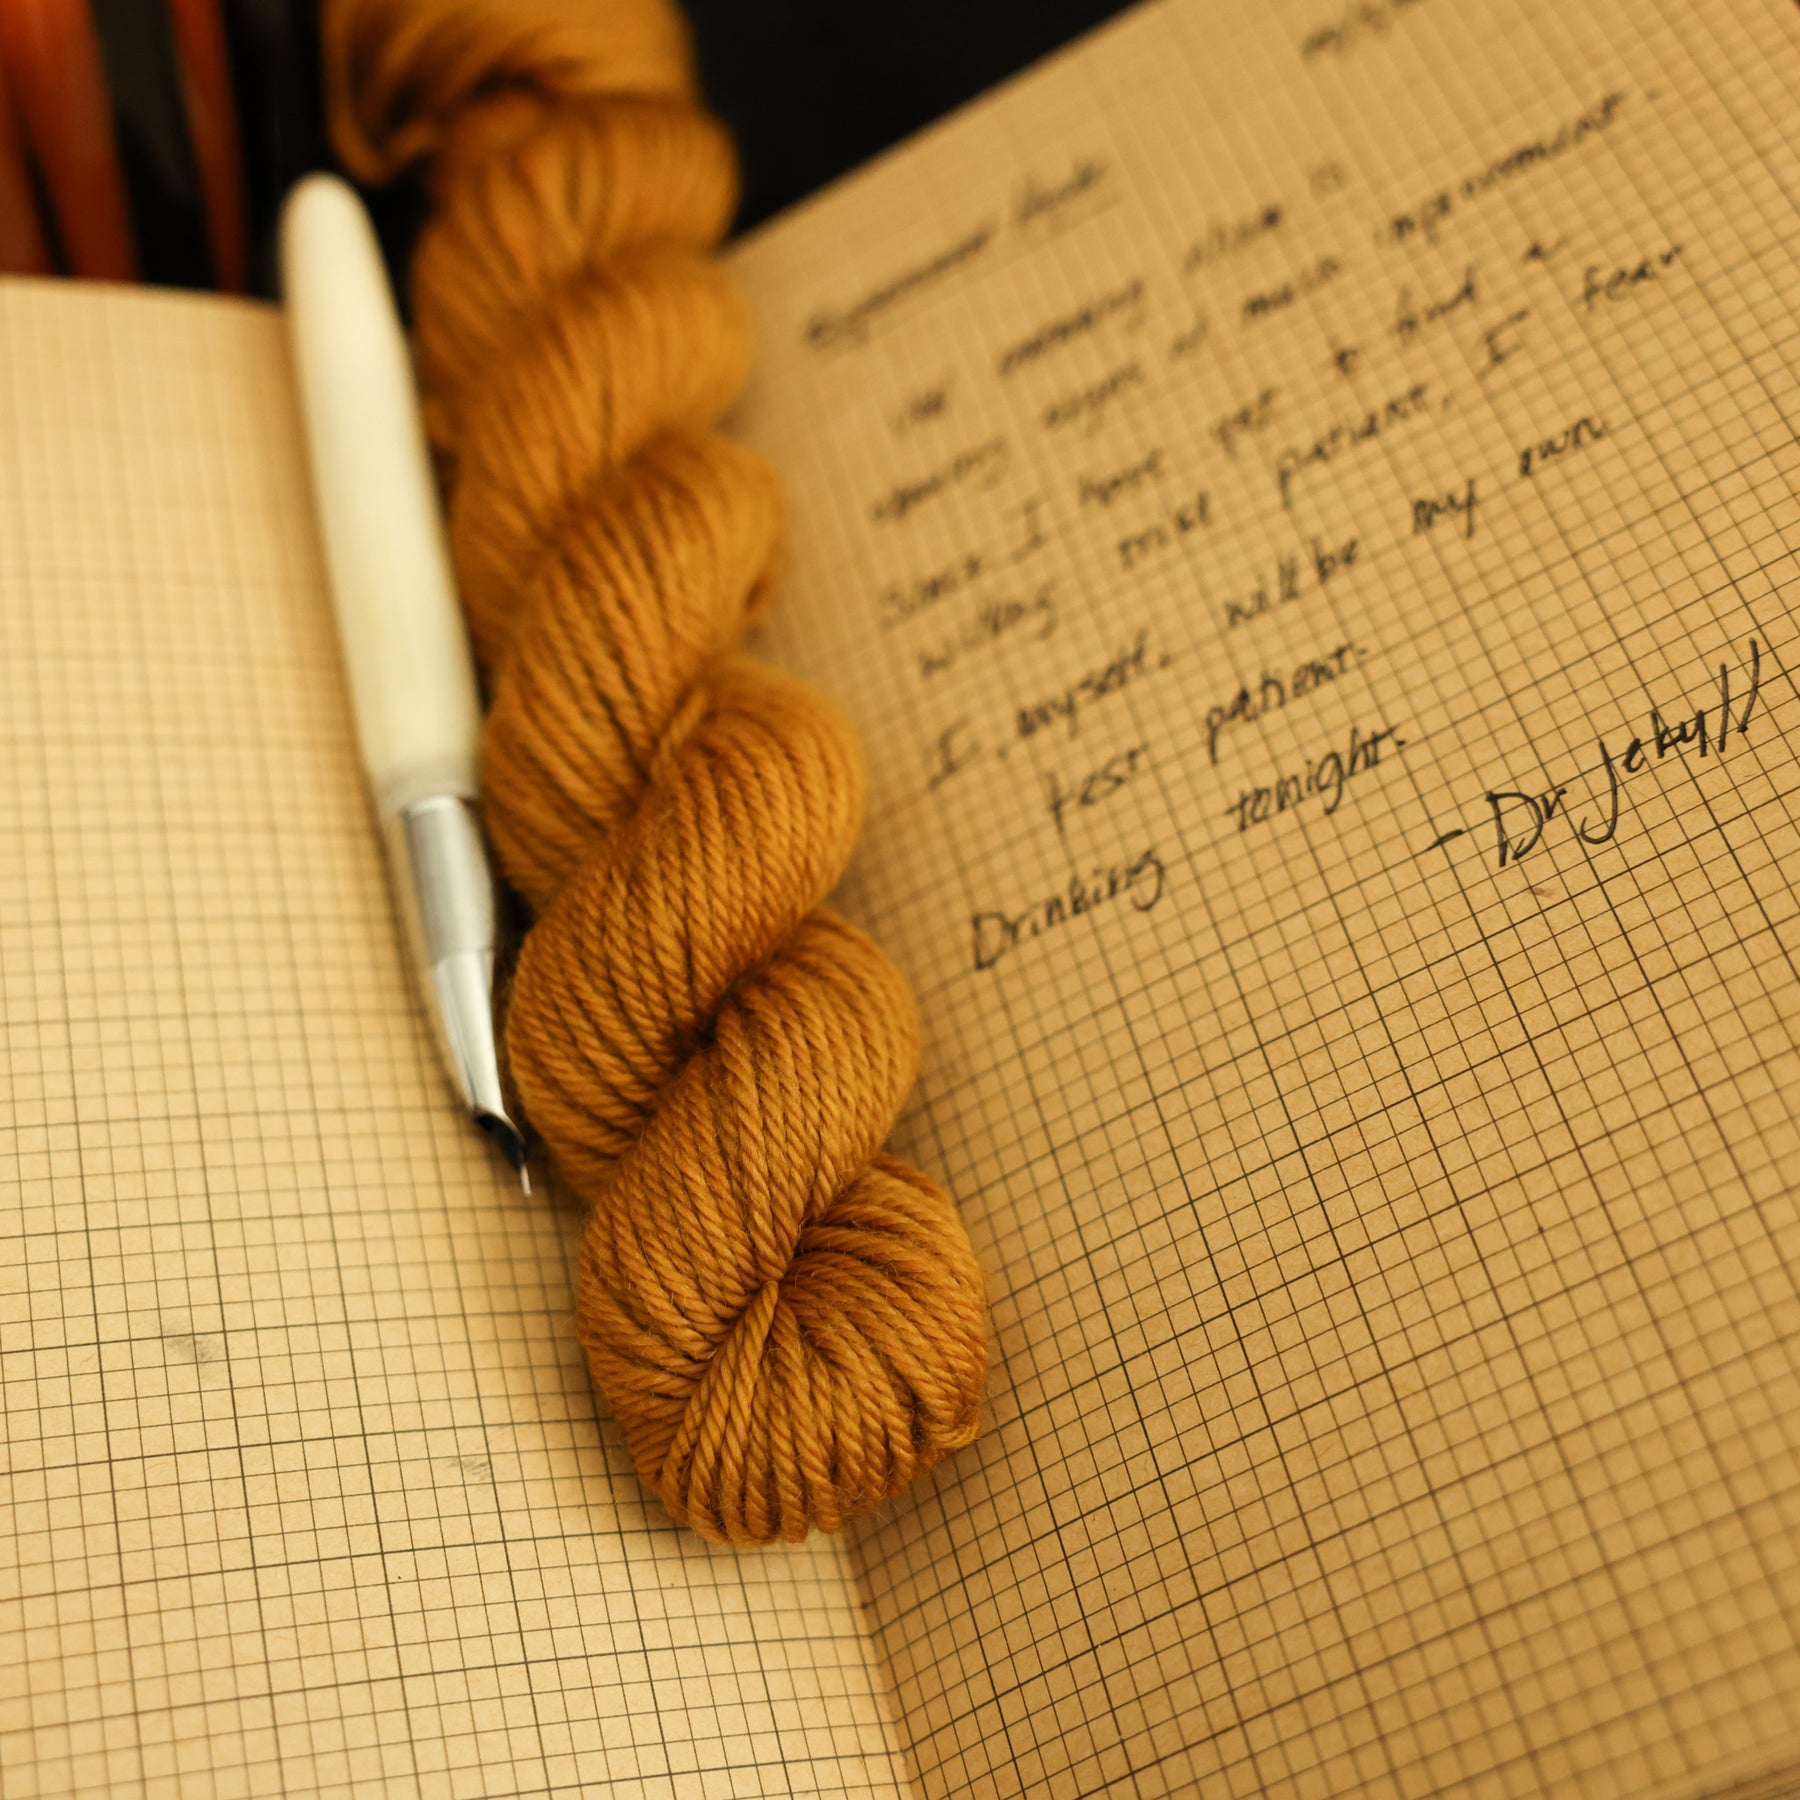 Experiment
The morning
showing signs of much improvement.
Since I have yet to find a
willing trial patient, I fear
I, myself, will be my own
test patient.
Drinking tonight.
- Dr Jekyll